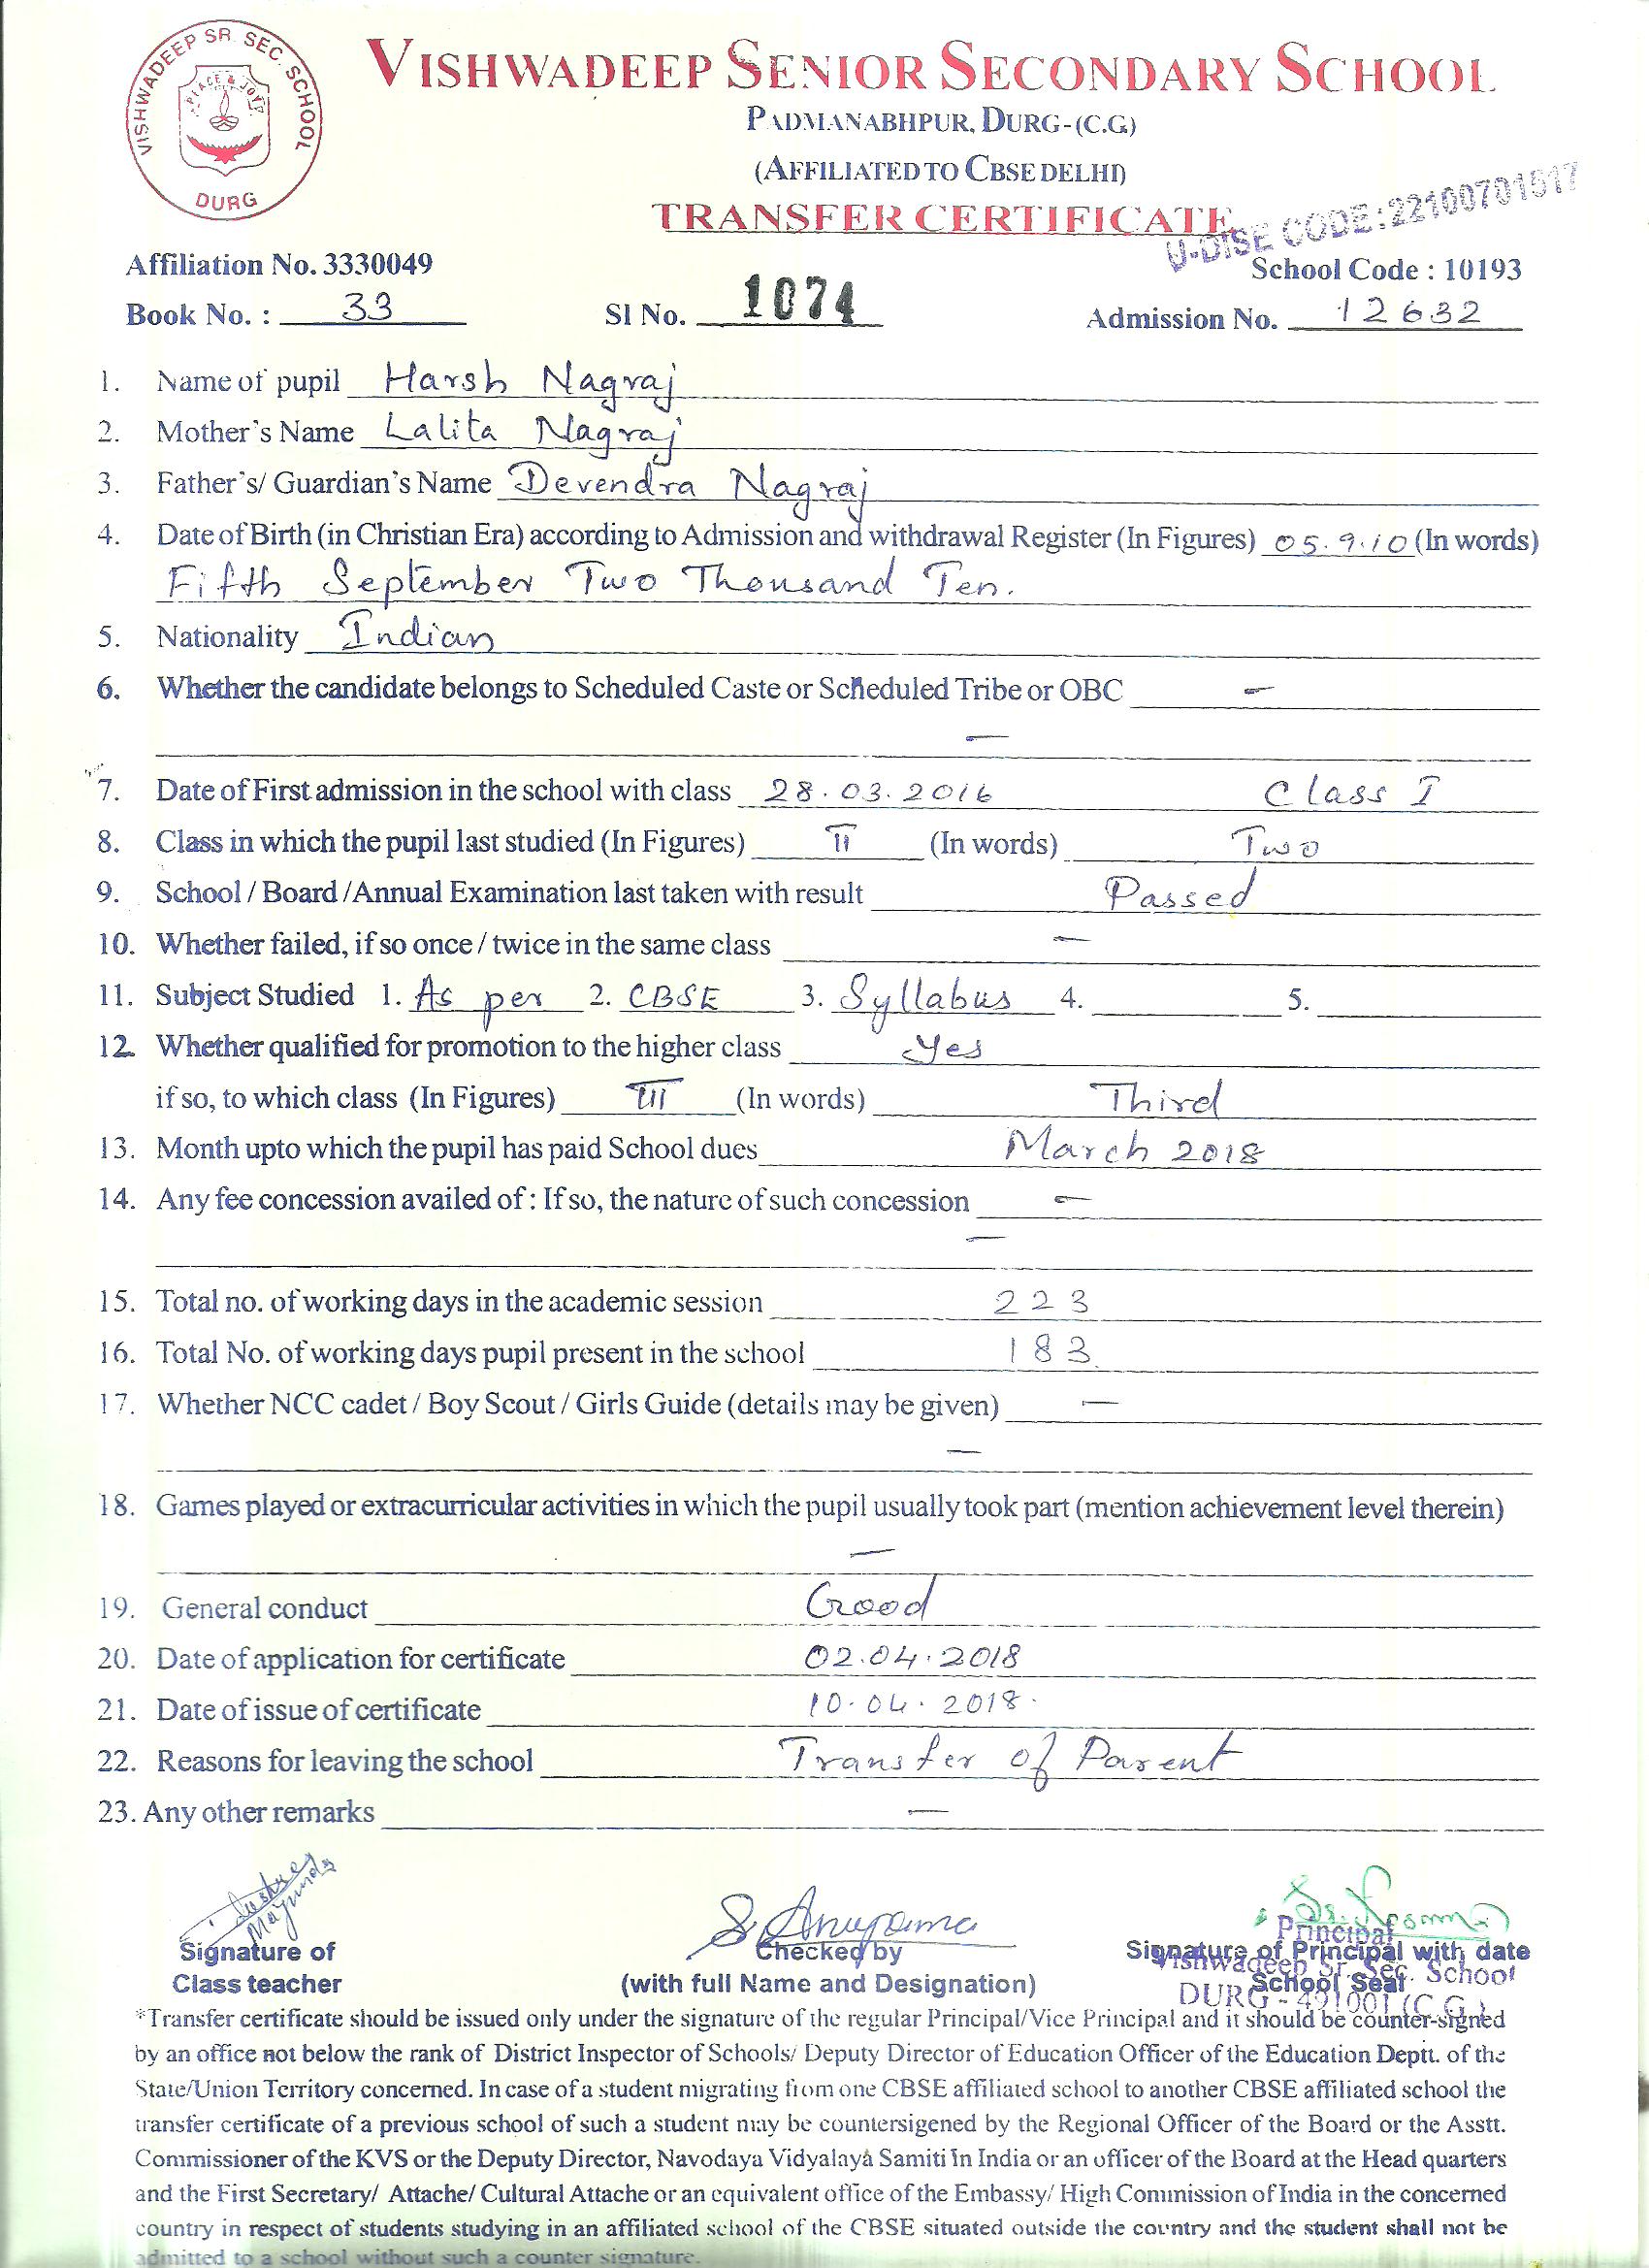 VISHWADEEP SR. SEC. SCHOOL
PEACE & JOY
DURG
VISHWADEEP SENIOR SECONDARY SCHOOL
PADMANABHPUR, DURG-(C.G.)
(AFFILIATED TO CBSE DELHI)
TRANSFER CERTIFICATE
U-DISE CODE:22100701517
Affiliation No. 3330049 School Code : 10193
Book No. : 33 Sl No. 1074 Admission No. 12632
1. Name of pupil Harsh Nagraj
2. Mother's Name Lalita Nagraj
3. Father's/ Guardian's Name Devendra Nagraj
4. Date of Birth (in Christian Era) according to Admission and withdrawal Register (In Figures) 05.9.10 (In words)
Fifth September Two Thousand Ten.
5. Nationality Indian
6. Whether the candidate belongs to Scheduled Caste or Scheduled Tribe or OBC –
–
7. Date of First admission in the school with class 28.03.2016 Class I
8. Class in which the pupil last studied (In Figures) II (In words) Two
9. School / Board /Annual Examination last taken with result Passed
10. Whether failed, if so once / twice in the same class –
11. Subject Studied 1. As per 2. CBSE 3. Syllabus 4. 5.
12. Whether qualified for promotion to the higher class Yes
if so, to which class (In Figures) III (In words) Third
13. Month upto which the pupil has paid School dues March 2018
14. Any fee concession availed of : If so, the nature of such concession –
–
15. Total no. of working days in the academic session 223
16. Total No. of working days pupil present in the school 183
17. Whether NCC cadet / Boy Scout / Girls Guide (details may be given) –
–
18. Games played or extracurricular activities in which the pupil usually took part (mention achievement level therein)
–
19. General conduct Good
20. Date of application for certificate 02.04.2018
21. Date of issue of certificate 10.04.2018.
22. Reasons for leaving the school Transfer of Parent
23. Any other remarks –
S. Anupama
Principal
Signature of Checked by Signature of Principal with date
Vishwadeep Sr. Sec. School
Class teacher (with full Name and Designation) School Seal
DURG - 491001 (C.G.)
*Transfer certificate should be issued only under the signature of the regular Principal/Vice Principal and it should be counter-signed
by an office not below the rank of District Inspector of Schools/ Deputy Director of Education Officer of the Education Deptt. of the
State/Union Territory concerned. In case of a student migrating from one CBSE affiliated school to another CBSE affiliated school the
transfer certificate of a previous school of such a student may be countersigened by the Regional Officer of the Board or the Asstt.
Commissioner of the KVS or the Deputy Director, Navodaya Vidyalaya Samiti in India or an officer of the Board at the Head quarters
and the First Secretary/ Attache/ Cultural Attache or an equivalent office of the Embassy/ High Commission of India in the concerned
country in respect of students studying in an affiliated school of the CBSE situated outside the country and the student shall not be
admitted to a school without such a counter signature.